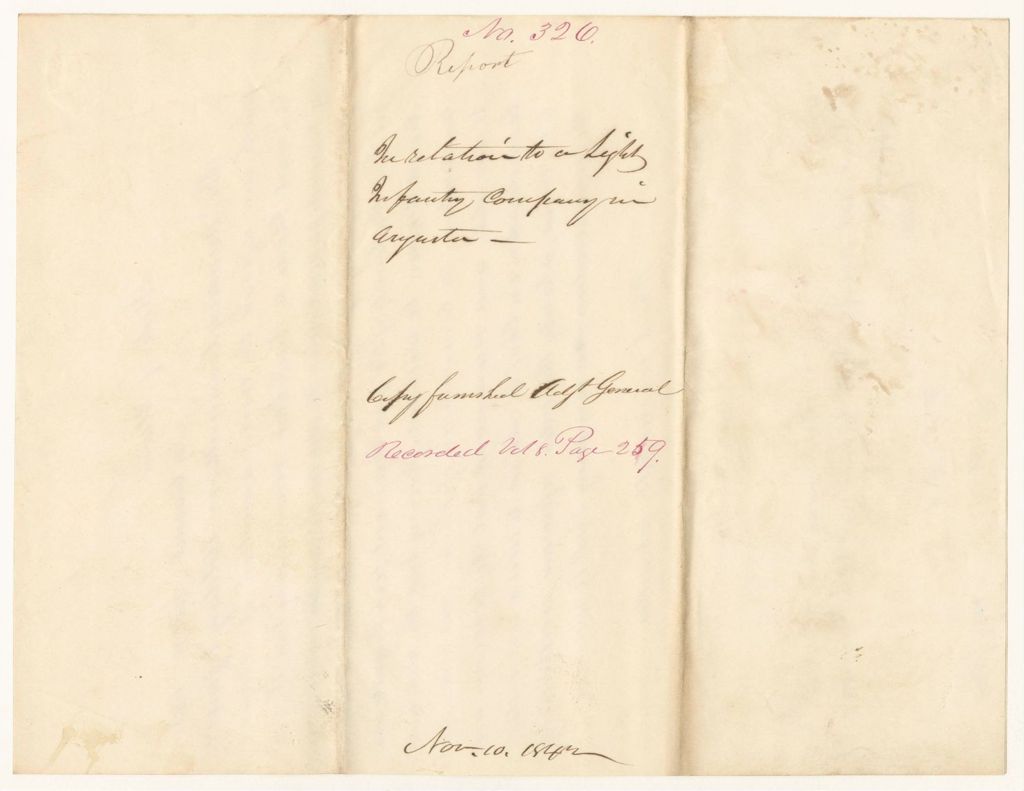 No. 326.
Report
In relation to a Light
Infantry Company in
Augusta —
Copy furnished Adjt General
Recorded Vol 8. Page 259.
Nov. 10. 1842